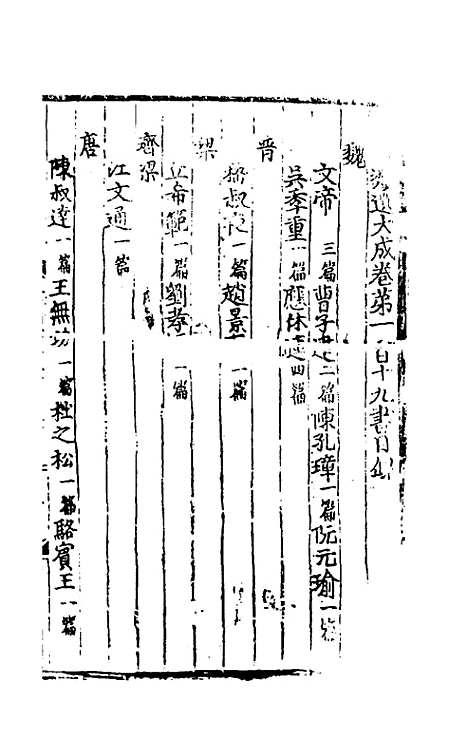 大成卷第一百十九書目錄
魏
文帝 三篇 曹子建二篇 陳孔璋一篇 阮元瑜一篇
吳季重一篇 應休璉四篇
晉
嵇叔夜一篇 趙景一篇
梁
丘希範一篇 劉孝一篇
齊梁
江文通一篇
唐
陳叔達一篇 王無功一篇 杜之松一篇 駱賓王一篇